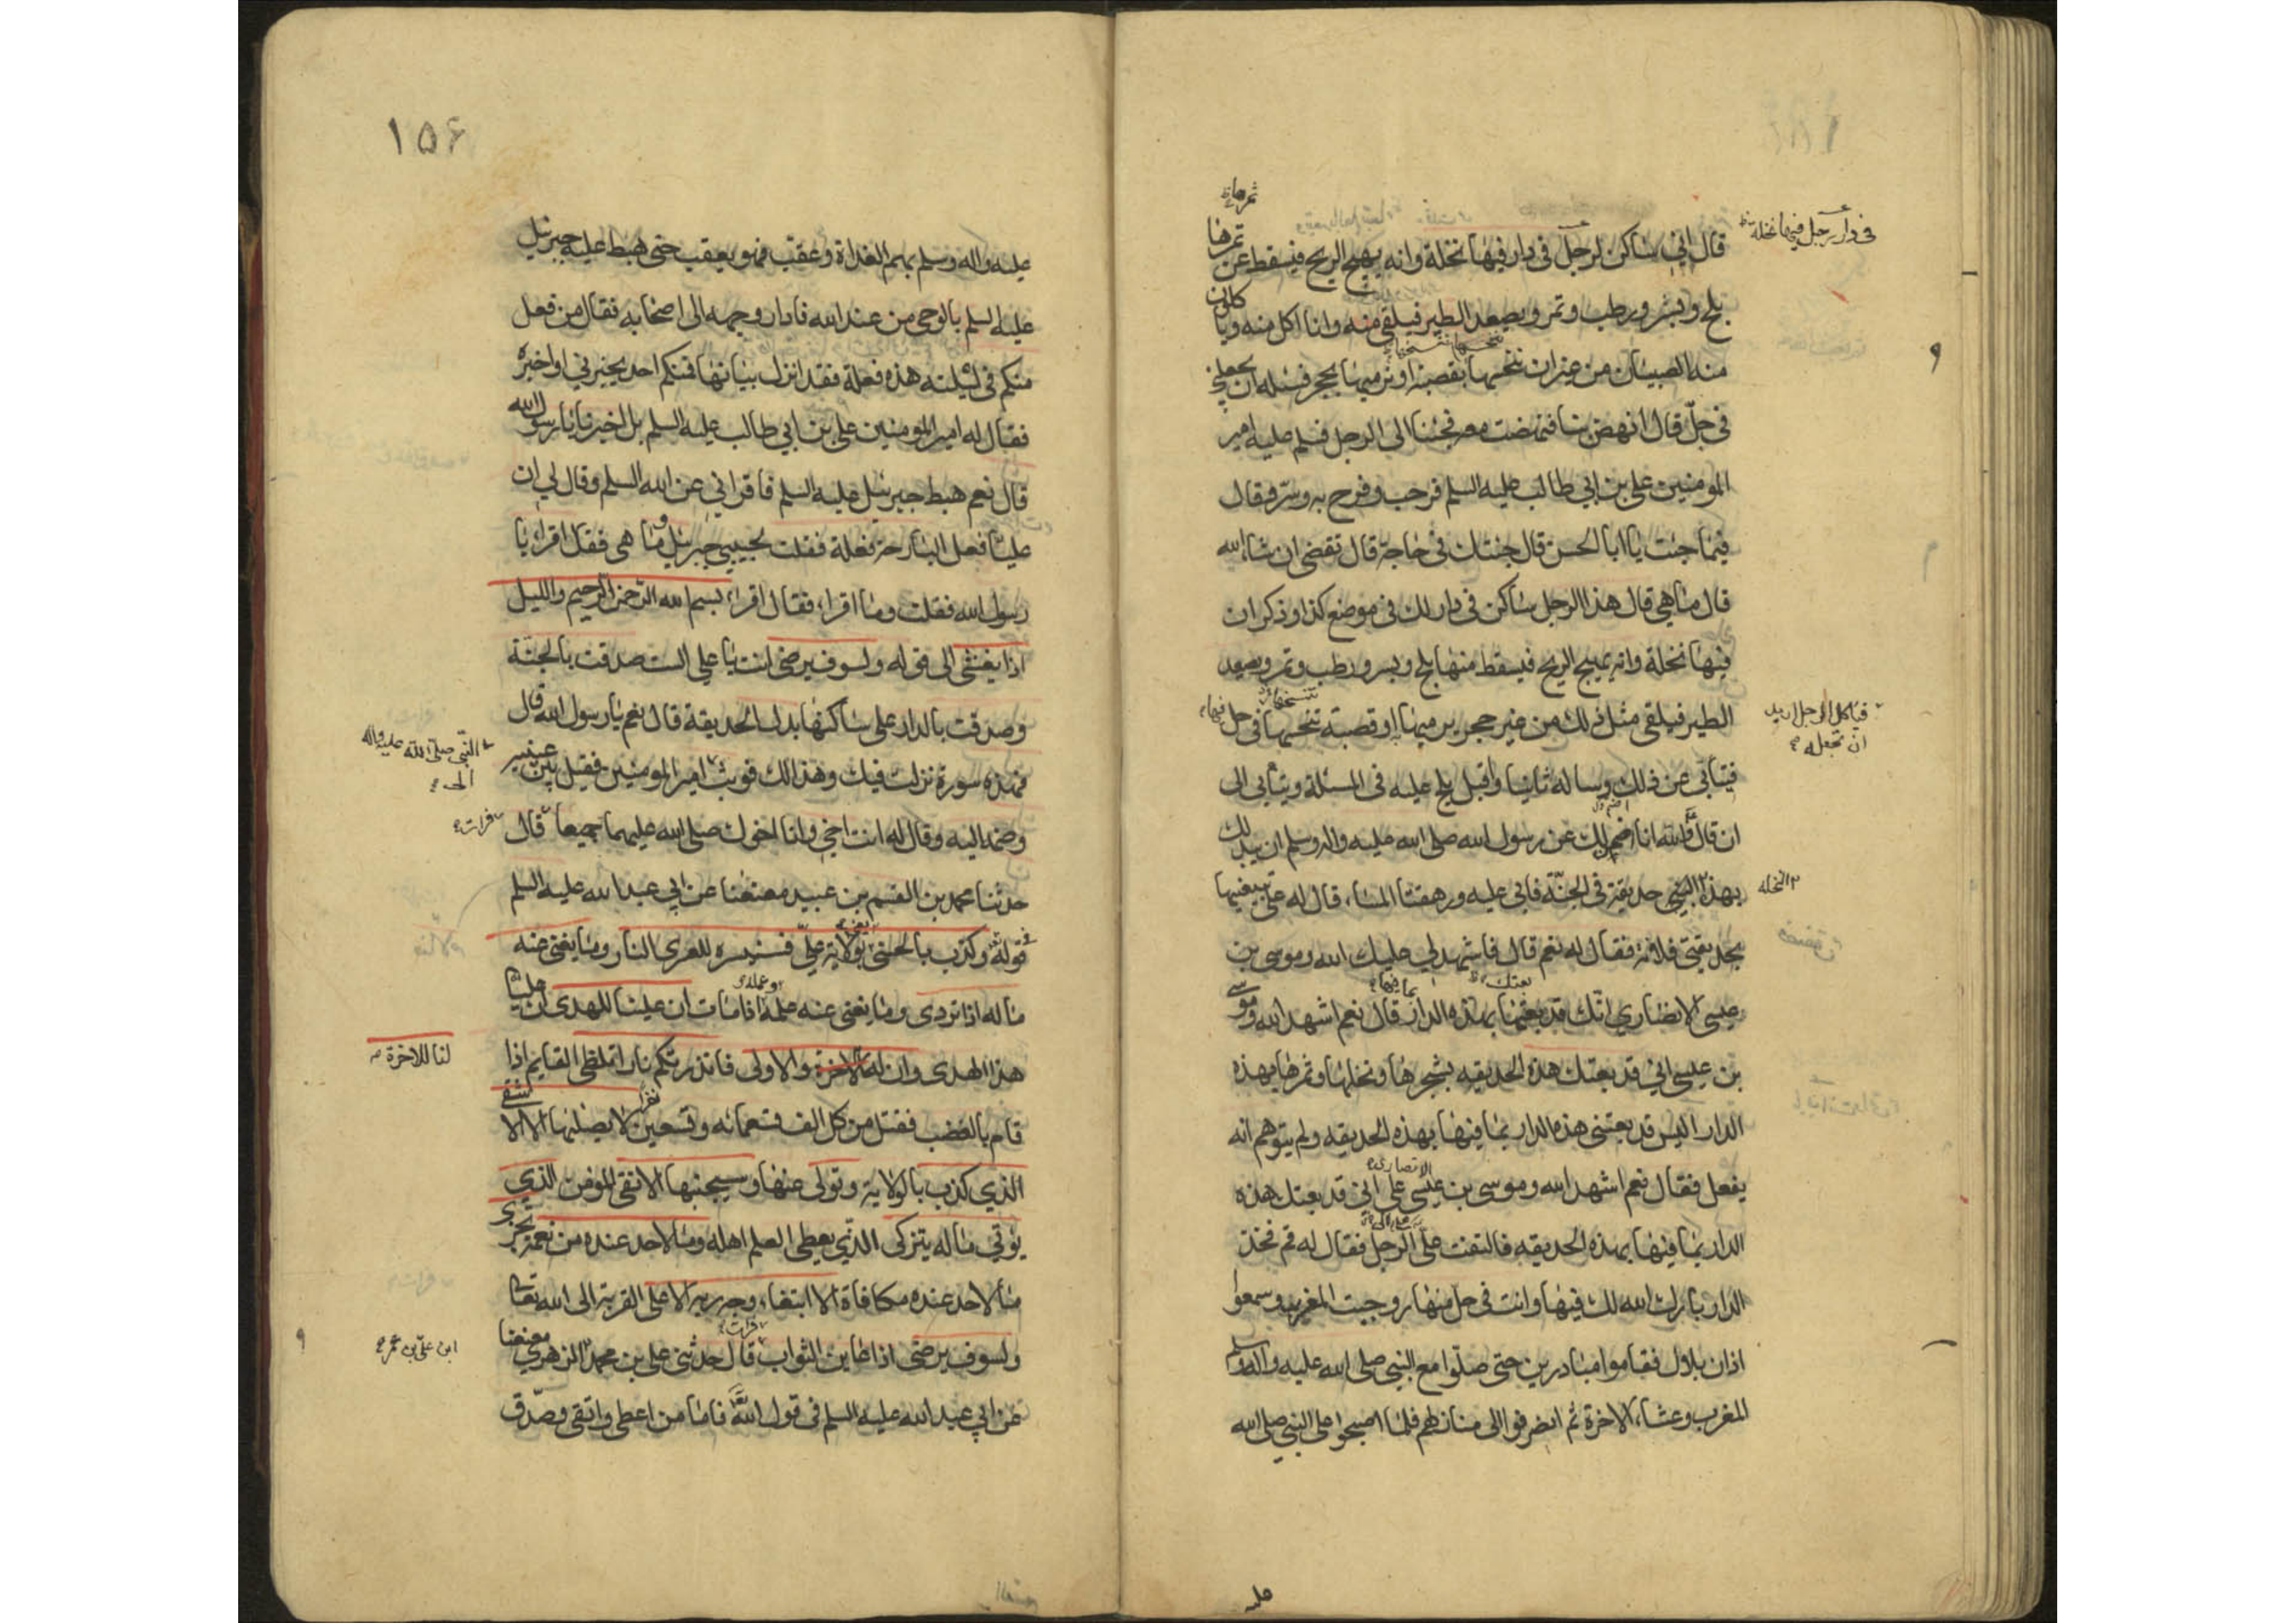 ثمرها
قال اني ساكن لرجل في دار فيها نخلة وانه يهيج الريح فيسقط عن ثمرها
في دار رجل فيها نخلة
بلح وبسر ورطب وتمر ويصعد الطير فيلقي منه وانا اكل منه وياكلون
منه الصبيان من غير ان ننخسها بقصبة او نرميها بحجر فسله ان يجعلني
في حل قال انهض بنا فنهضت معه فجئنا الى الرجل فسلم عليه امير
المومنين علي بن ابي طالب عليه السلم فرحب وفرح به وسر وقال
فيما جئت يا ابا الحسن قال جئتك في حاجة قال تقضى ان شاء الله
قال ما هي قال هذا الرجل ساكن في دار لك في موضع كذا وذكر ان
فيها نخلة وانه يهيج الريح فيسقط منها بلح وبسر ورطب وتمر ويصعد
الطير فيلقي مثل ذلك من غير حجر يرميها او قصبة تنخسها في حل
فياكل الرجل اريد
ان تجعله
فتأبى عن ذلك وساله ثانيا واقبل يلح عليه في المسئلة ويتأبى الى
ان قال والله انا اضمن لك عن رسول الله صلى الله عليه واله وسلم ان يبدلك
بهذا النبي حديقة في الجنة فابى عليه ورهقنا المساء قال له علي تبيعنيها
النخله
بحديقتي فلانة فقال له نعم قال فاشهد لي عليك الله وموسى بن
عيسى الانصاري انك قد بعتها بهذه الدار قال نعم اشهد الله وموسى
بن عيسى اني قد بعتك هذه الحديقه بشجرها ونخلها وثمرها بهذه
الدار اليس قد بعتني هذه الدار بما فيها بهذه الحديقه ولم يتوهم انه
الانصاري
يفعل فقال نعم اشهد الله وموسى بن عيسى على اني قد بعتك هذه
الدار بما فيها بهذه الحديقه فالتفت علي الى الرجل فقال له قم فخذ
الدار بارك الله لك فيها وانت في حل منها روجبت المغرب وسمعوا
اذان بلال فقاموا مبادرين حتى صلوا مع النبي صلى الله عليه واله وسلم
المغرب وعشاء الاخرة ثم انصرفوا الى منازلهم فلما اصبحوا صلى النبي صلى الله
عليه
۱۵۶
عليه واله وسلم بهم الغداة وعقب فهو يعقب حتى هبط عليه جبرئيل
عليه السلم بالوحي من عند الله فادار وجهه الى اصحابه فقال من فعل
منكم في ليلته هذه فعلة فقد انزل بيانها فمنكم احد يخبرني او اخبره
فقال له امير المومنين علي بن ابي طالب عليه السلم بل اخبرنا يا رسول الله
قال نعم هبط جبرئيل عليه السلم فاقراني عن الله السلم وقال لي ان
عليا فعل البارحة فعلة فقلت لحبيبي جبرئيل وما هي فقال اقراء يا
رسول الله فقلت وما اقراء فقال اقراء بسم الله الرحمن الرحيم والليل
اذا يغشى الى قوله ولسوف يرضى انت يا علي الست صدقت بالجنة
وصدقت بالدار على ساكنها بدل الحديقة قال نعم يا رسول الله قال
فهذه سورة نزلت فيك وهذا لك فوثب امير المومنين فقبل بين عينيه
النبي صلى الله عليه واله
الى
وضمه اليه وقال له انت اخي وانا اخوك صلى الله عليهما جميعا قال
فرات
حدثنا محمد بن القسم بن عبيد معنعنا عن ابي عبد الله عليه السلم
في قوله وكذب بالحسنى بولاية علي فسنيسره للعرى النار وما يغني عنه
ماله اذا تردى وما يغني عنه علمه اذا مات ان علينا للهدى ان عليا
هذا الهدى وان له الاخرة والاولى فانذرتكم نارا تلظى القايم اذا
لنا للاخرة
قام بالغضب فقتل من كل الف تسعمائه وتسعين لا يصليها الا الاشقى
الذي كذب بالولاية وتولى عنها وسيجنبها الاتقى المومن الذي
يوتي ماله يتزكى الذي يعطي العلم اهله وما لاحد عنده من نعمة تجزى
ما لاحد عنده مكافاة الا ابتغاء وجه ربه الاعلى القربة الى الله تعالى
ولسوف يرضى اذا عاين الثواب قال حدثني علي بن محمد الزهري معنعنا
ابن علي بن عمر
عن ابي عبد الله عليه السلم في قول الله فاما من اعطى واتقى وصدق